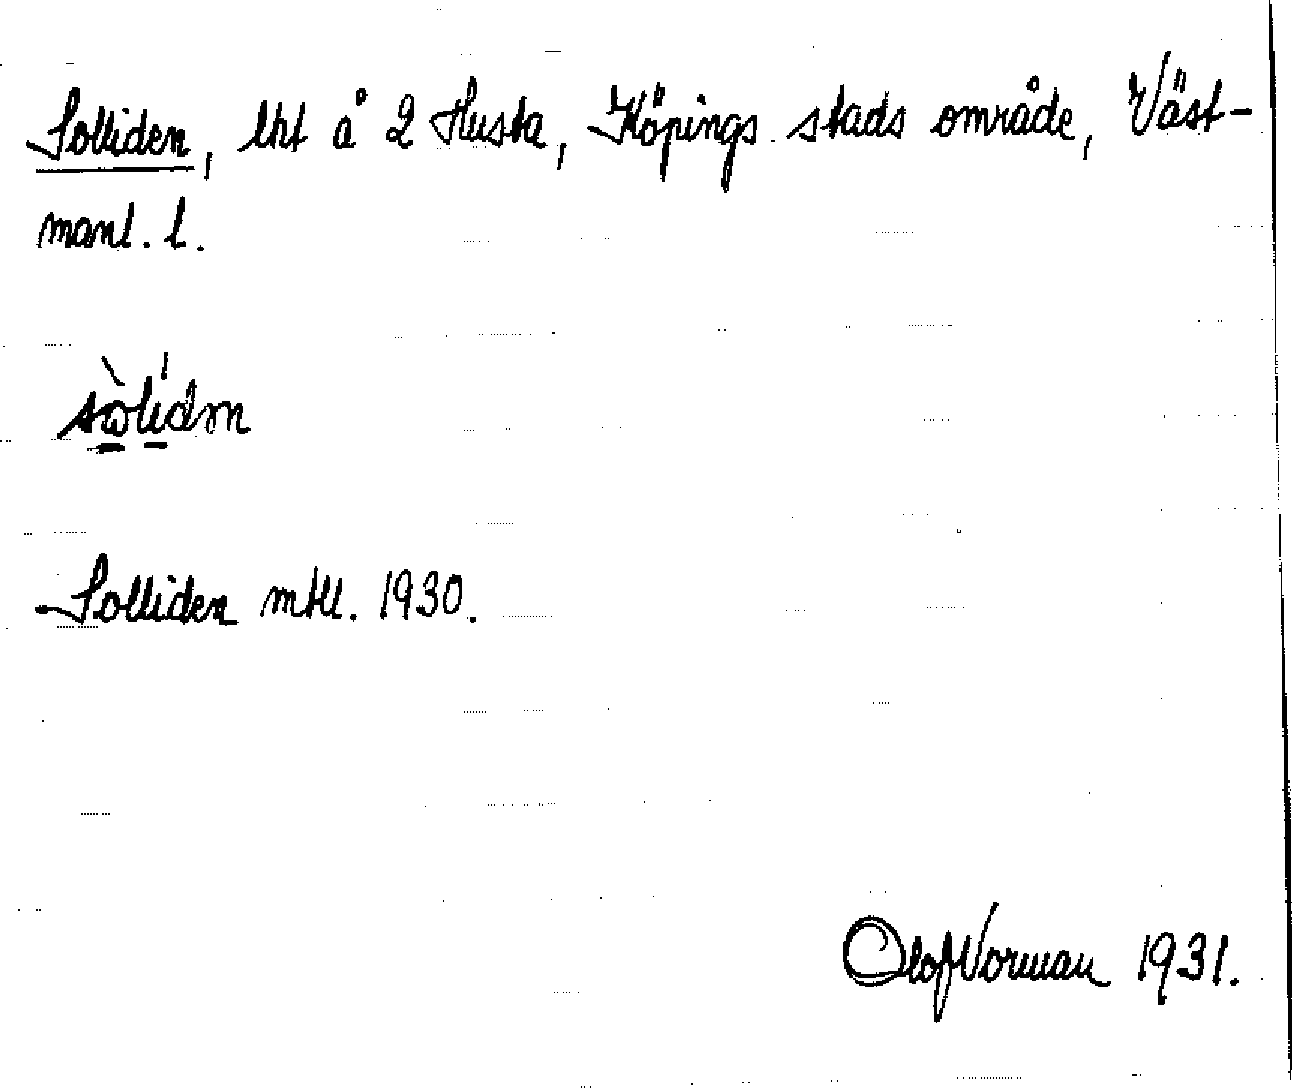 Solliden, lht å 2 Husta, Köpings stads område, Väst-
manl. l.
Solliden mtl. 1930.
Olof Norman 1931.